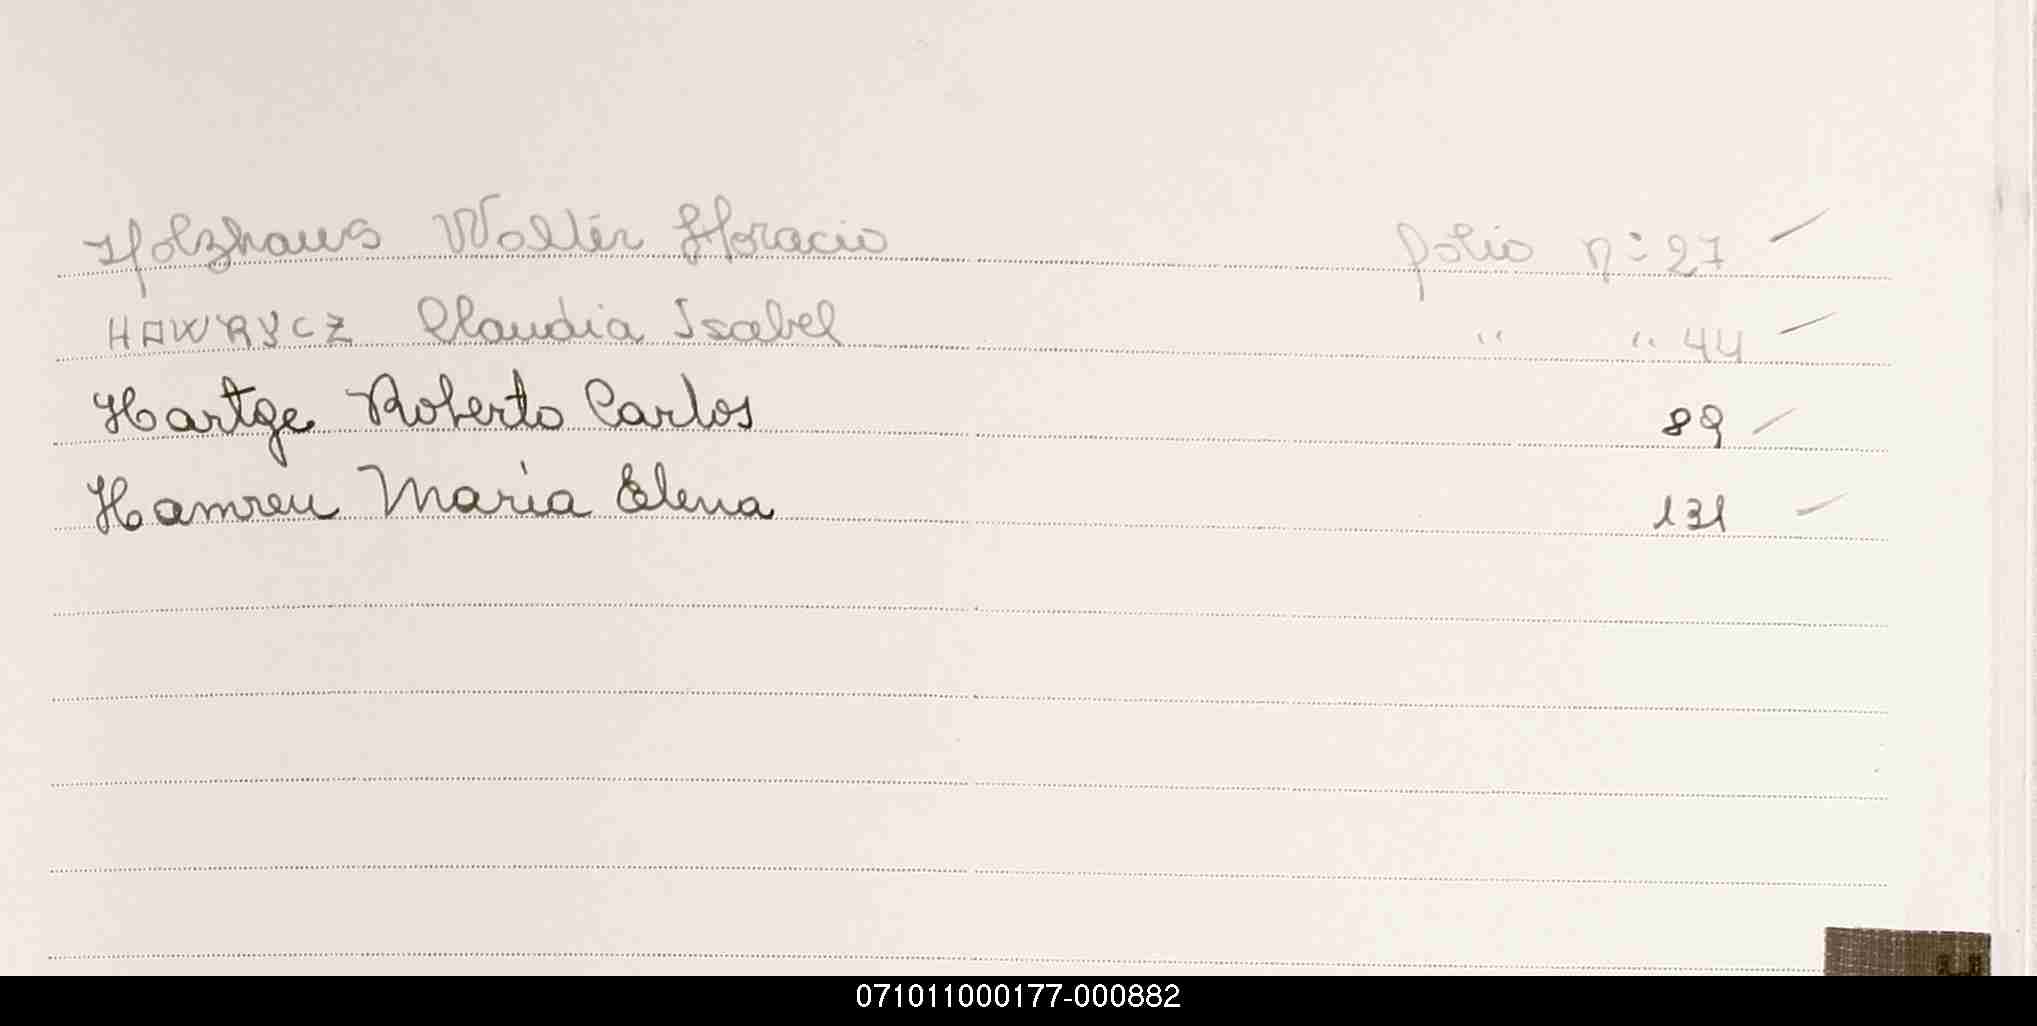 Holzhaus Walter Horacio folio n: 27
HAWRYCZ Claudia Isabel " " 44
Hartge Roberto Carlos 89
Hamreu María Elena 131
071011000177-000882